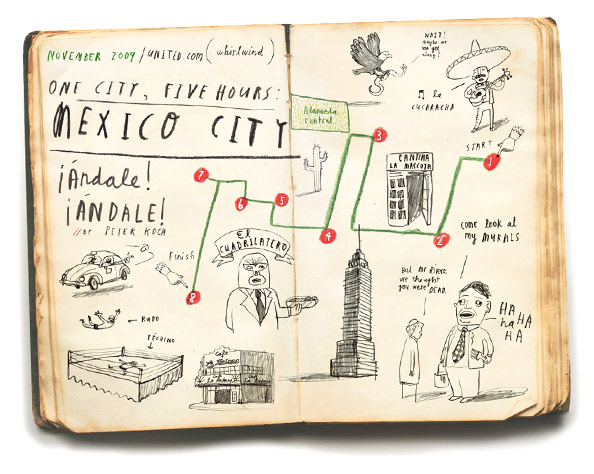 NOVEMBER 2009 / UNITED.COM (whirlwind)
ONE CITY, FIVE HOURS:
MEXICO CITY
¡Ándale!
¡ÁNDALE!
// BY PETER KOCH
Finish
8
7
6
5
4
EL
CUADRILATERO
← RUDO
TÉCHINO
cafe
Alameda
central
3
WAIT!
maybe we
can get
along!
♫ la
CUCARACHA
START
1
CANTINA
LA MASCOTA
2
come look at
my MURALS
But Mr Rivera
we thought
you were DEAD.
HA
haHA
HA